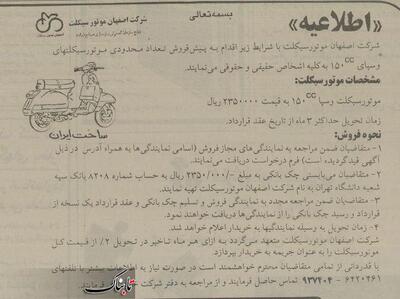 بسمه تعالی
«اطلاعیه»
شرکت اصفهان موتورسیکلت
شرکت اصفهان موتورسیکلت با شرایط زیر اقدام به پیش‌فروش تعداد محدودی موتورسیکلتهای
وسپای ۱۵۰CC به کلیه اشخاص حقیقی و حقوقی می‌نمایند.
مشخصات موتورسیکلت:
موتورسیکلت وسپا ۱۵۰CC به قیمت ۲۳۵۰۰۰۰ ریال
زمان تحویل حداکثر ۳ ماه از تاریخ عقد قرارداد.
ساخت ایران
نحوه فروش:
۱- متقاضیان ضمن مراجعه به نمایندگی های مجاز فروش (اسامی نمایندگی‌ها به همراه آدرس در ذیل
آگهی قید گردیده است) فرم درخواست دریافت می‌نمایند.
۲- متقاضیان می‌بایستی چک بانکی به مبلغ /۲۳۵۰/۰۰۰- ریال به حساب شماره ۸۲۰۸ بانک سپه
شعبه دانشگاه تهران به نام شرکت اصفهان موتورسیکلت تهیه نمایند.
۳- متقاضیان ضمن مراجعه مجدد به نمایندگی فروش و تسلیم چک بانکی و عقد قرارداد یک نسخه از
قرارداد و رسید چک بانکی را از نمایندگی‌ها دریافت خواهند نمود.
۴- زمان تحویل به وسیله نمایندگیها به خریدار اعلام خواهد شد.
شرکت اصفهان موتورسیکلت متعهد می‌گردد به ازای هر ماه تاخیر در تحویل ۲٪ از قیمت کل
موتورسیکلت را به عنوان جریمه به خریدار بپردازد.
با قدردانی از تمامی متقاضیان محترم خواهشمند است در صورت نیاز به اطلاعات بیشتر با تلفنهای
۶۴۲۰۲۶۱ - ۹۳۷۲۰۴ تماس حاصل فرمایند و از مراجعه به دفتر شرکت فرمایند.
تابناک